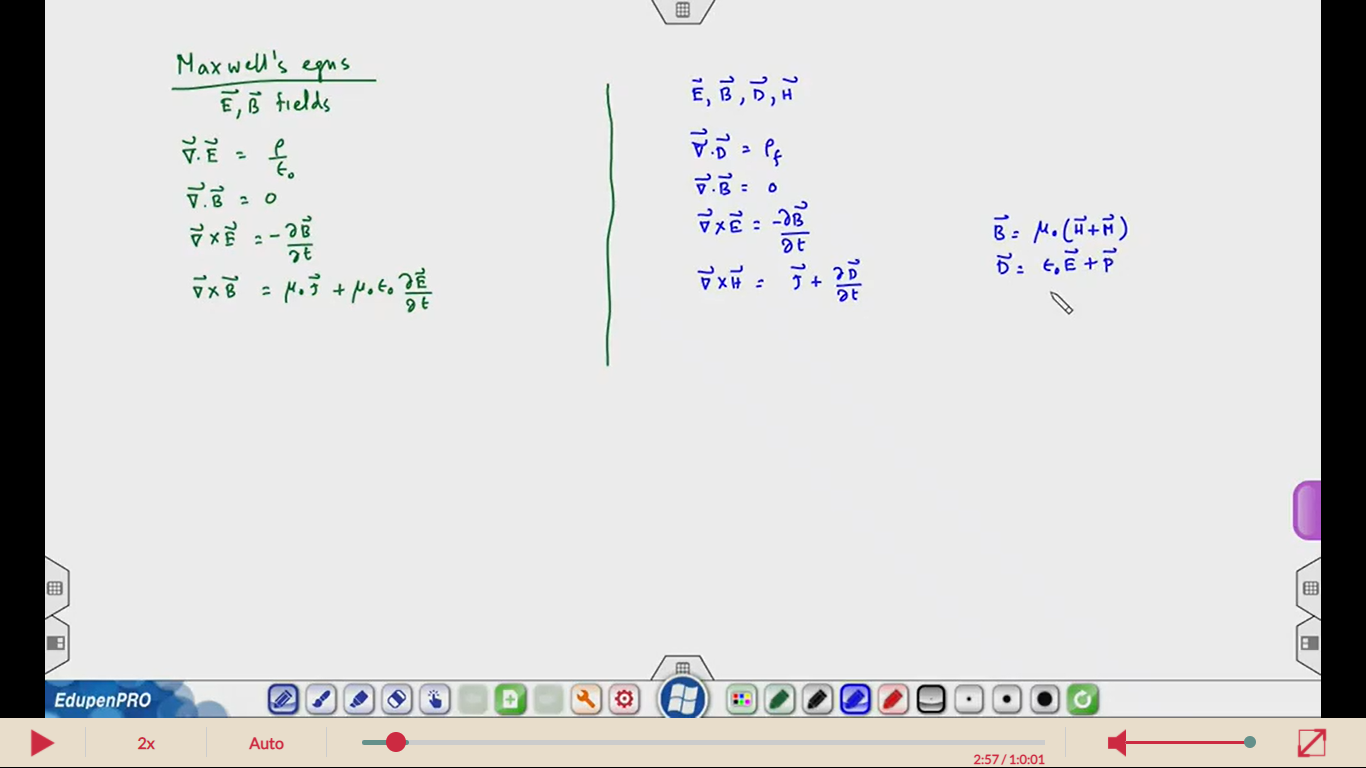 Maxwell's eqns
E⃗, B⃗ fields
∇⃗.E⃗ = ρ/ε₀
∇⃗.B⃗ = 0
∇⃗×E⃗ = -∂B⃗/∂t
∇⃗×B⃗ = μ₀J⃗ + μ₀ε₀ ∂E⃗/∂t
E⃗, B⃗, D⃗, H⃗
∇⃗.D⃗ = ρ_f
∇⃗.B⃗ = 0
∇⃗×E⃗ = -∂B⃗/∂t
∇⃗×H⃗ = J⃗ + ∂D⃗/∂t
B⃗ = μ₀(H⃗+M⃗)
D⃗ = ε₀E⃗ + P⃗
EdupenPRO
2x Auto 2:57 / 1:0:01